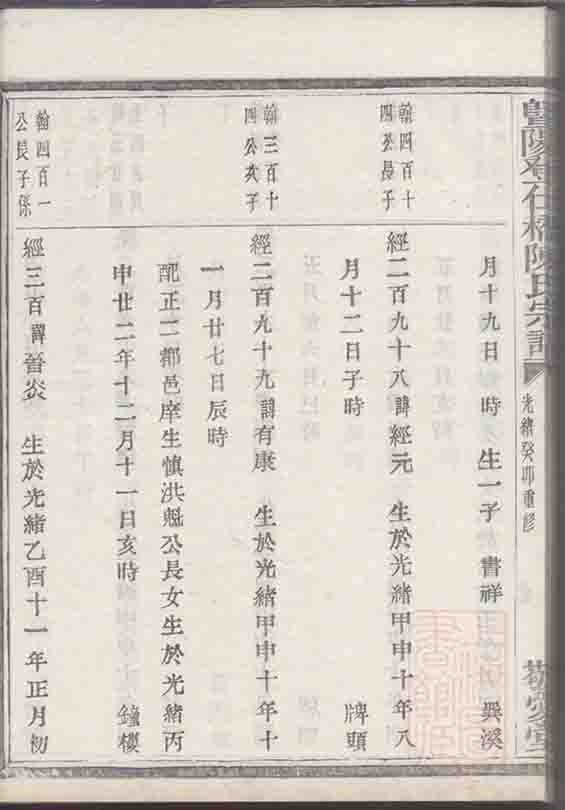 暨陽 石橋陳氏宗譜
光緒癸卯重修
敬愛堂
月十九日 時 生一子 書祥
巽溪
翰四百十
四公長子
經二百九十八諱經元 生於光緒甲申十年八
月十二日子時
牌頭
翰三百十
四公次子
經二百九十九諱有康 生於光緒甲申十年十
一月廿七日辰時
配正一都邑庠生慎洪魁公長女生於光緒丙
申廿二年十二月十一日亥時
鐘樓
翰四百一
公長子係
經三百諱晉炎 生於光緒乙酉十一年正月初